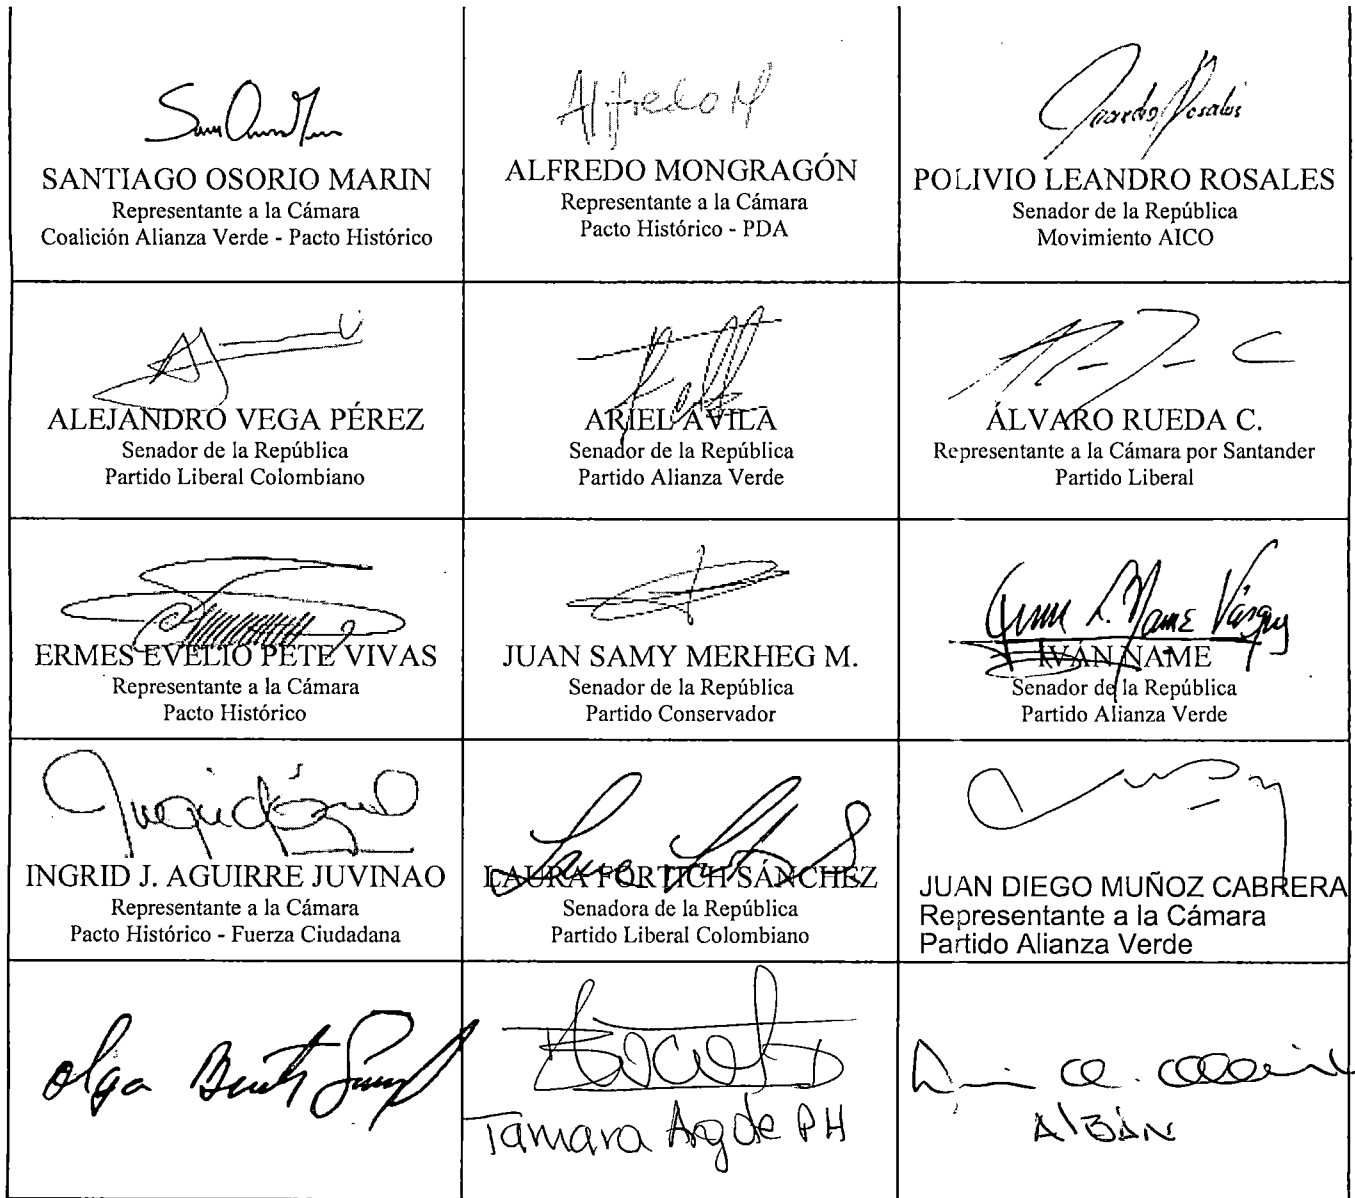 Alfredo M
SANTIAGO OSORIO MARIN
Representante a la Cámara
Coalición Alianza Verde - Pacto Histórico
ALFREDO MONGRAGÓN
Representante a la Cámara
Pacto Histórico - PDA
Rosales
POLIVIO LEANDRO ROSALES
Senador de la República
Movimiento AICO
ALEJANDRO VEGA PÉREZ
Senador de la República
Partido Liberal Colombiano
ARIEL AVILA
Senador de la República
Partido Alianza Verde
ÁLVARO RUEDA C.
Representante a la Cámara por Santander
Partido Liberal
ERMES EVELIO PETE VIVAS
Representante a la Cámara
Pacto Histórico
JUAN SAMY MERHEG M.
Senador de la República
Partido Conservador
Name Vásquez
IVÁN NAME
Senador de la República
Partido Alianza Verde
INGRID J. AGUIRRE JUVINAO
Representante a la Cámara
Pacto Histórico - Fuerza Ciudadana
LAURA FORTICH SÁNCHEZ
Senadora de la República
Partido Liberal Colombiano
JUAN DIEGO MUÑOZ CABRERA
Representante a la Cámara
Partido Alianza Verde
Olga
Tamara Argote PH
Albán